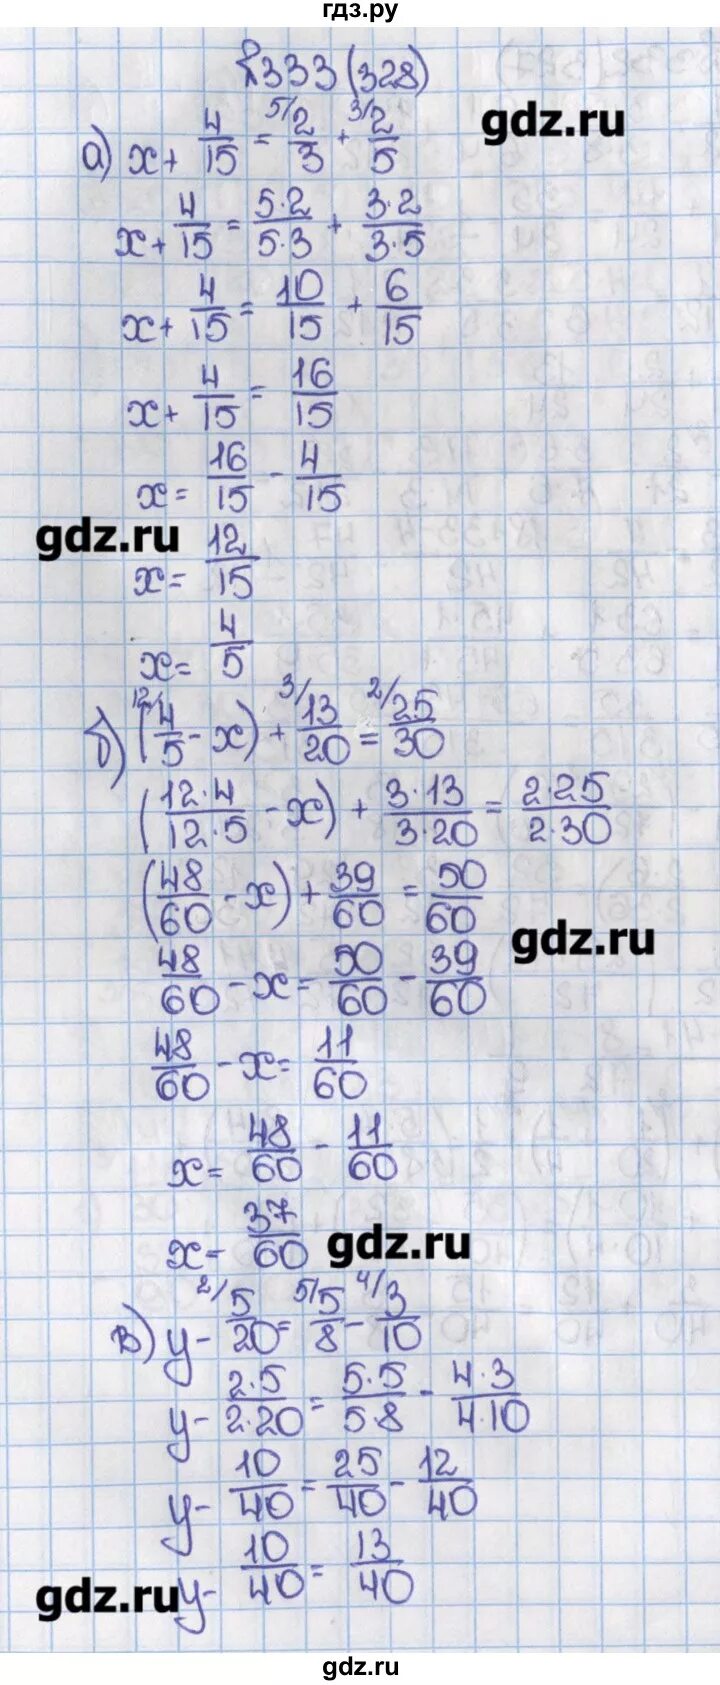 гдз.ру
№333(328)
gdz.ru
а) x + 4/15 = 5/ 2/3 + 3/ 2/5
x + 4/15 = 5·2/5·3 + 3·2/3·5
x + 4/15 = 10/15 + 6/15
x + 4/15 = 16/15
x = 16/15 - 4/15
gdz.ru
x = 12/15
x = 4/5
б) (12/ 4/5 - x) + 3/ 13/20 = 2/ 25/30
(12·4/12·5 - x) + 3·13/3·20 = 2·25/2·30
(48/60 - x) + 39/60 = 50/60
gdz.ru
48/60 - x = 50/60 - 39/60
48/60 - x = 11/60
x = 48/60 - 11/60
x = 37/60
gdz.ru
в) y - 2/ 5/20 = 5/ 5/8 - 4/ 3/10
y - 2·5/2·20 = 5·5/5·8 - 4·3/4·10
y - 10/40 = 25/40 - 12/40
y - 10/40 = 13/40
gdz.ru
gdz.ru